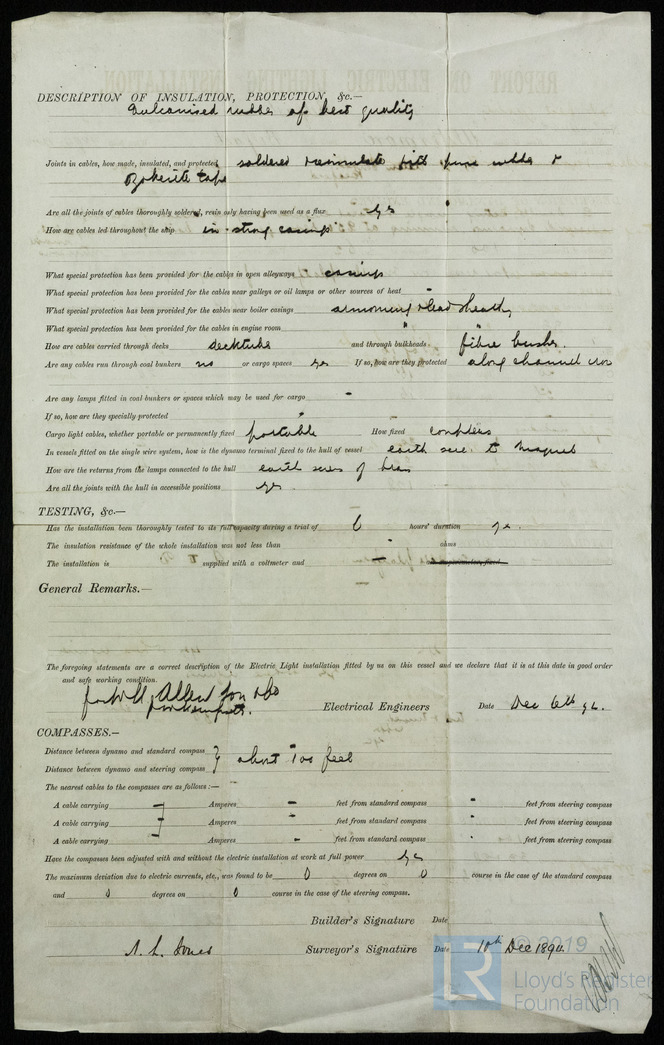 DESCRIPTION OF INSULATION, PROTECTION, &c.—
Vulcanised rubber of best quality
Joints in cables, how made, insulated, and protected soldered with pure rubber &
Ozokerite tape
Are all the joints of cables thoroughly soldered, resin only having been used as a flux yes
How are cables led throughout the ship in strong casings
What special protection has been provided for the cables in open alleyways casings
What special protection has been provided for the cables near galleys or oil lamps or other sources of heat "
What special protection has been provided for the cables near boiler casings armouring & lead sheath
What special protection has been provided for the cables in engine room " "
How are cables carried through decks decktube and through bulkheads fibre bushes.
Are any cables run through coal bunkers no or cargo spaces yes If so, how are they protected along channel iron
Are any lamps fitted in coal bunkers or spaces which may be used for cargo -
If so, how are they specially protected
Cargo light cables, whether portable or permanently fixed portable How fixed couplers
In vessels fitted on the single wire system, how is the dynamo terminal fixed to the hull of vessel earth screw to magnet
How are the returns from the lamps connected to the hull earth screws of brass
Are all the joints with the hull in accessible positions yes
TESTING, &c.—
Has the installation been thoroughly tested to its full capacity during a trial of 6 hours' duration yes.
The insulation resistance of the whole installation was not less than - ohms
The installation is supplied with a voltmeter and
General Remarks.—
The foregoing statements are a correct description of the Electric Light installation fitted by us on this vessel and we declare that it is at this date in good order
and safe working condition.
for W H Allen Son & Co
Electrical Engineers Date Dec 6th 94.
COMPASSES.—
Distance between dynamo and standard compass } about 100 feet
Distance between dynamo and steering compass
The nearest cables to the compasses are as follows:—
A cable carrying - Amperes - feet from standard compass - feet from steering compass
A cable carrying - Amperes - feet from standard compass - feet from steering compass
A cable carrying - Amperes - feet from standard compass - feet from steering compass
Have the compasses been adjusted with and without the electric installation at work at full power yes
The maximum deviation due to electric currents, etc., was found to be 0 degrees on 0 course in the case of the standard compass
and 0 degrees on 0 course in the case of the steering compass.
Builder's Signature Date
A. L. Jones Surveyor's Signature Date 10th Dec 1894.
© 2019
LR Lloyd's Register
Foundation